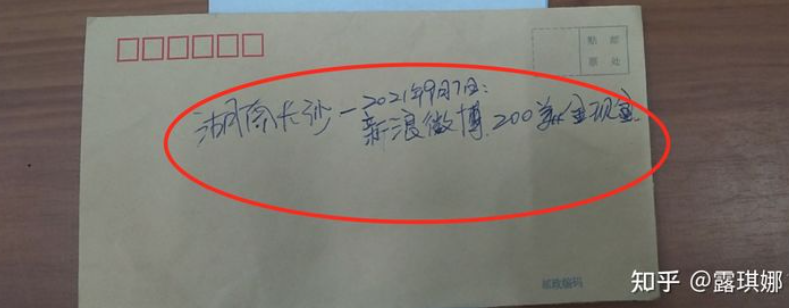 贴 邮
票 处
湖南长沙—2021年9月7日:
新浪微博.200美金现金.
邮政编码
知乎 @露琪娜